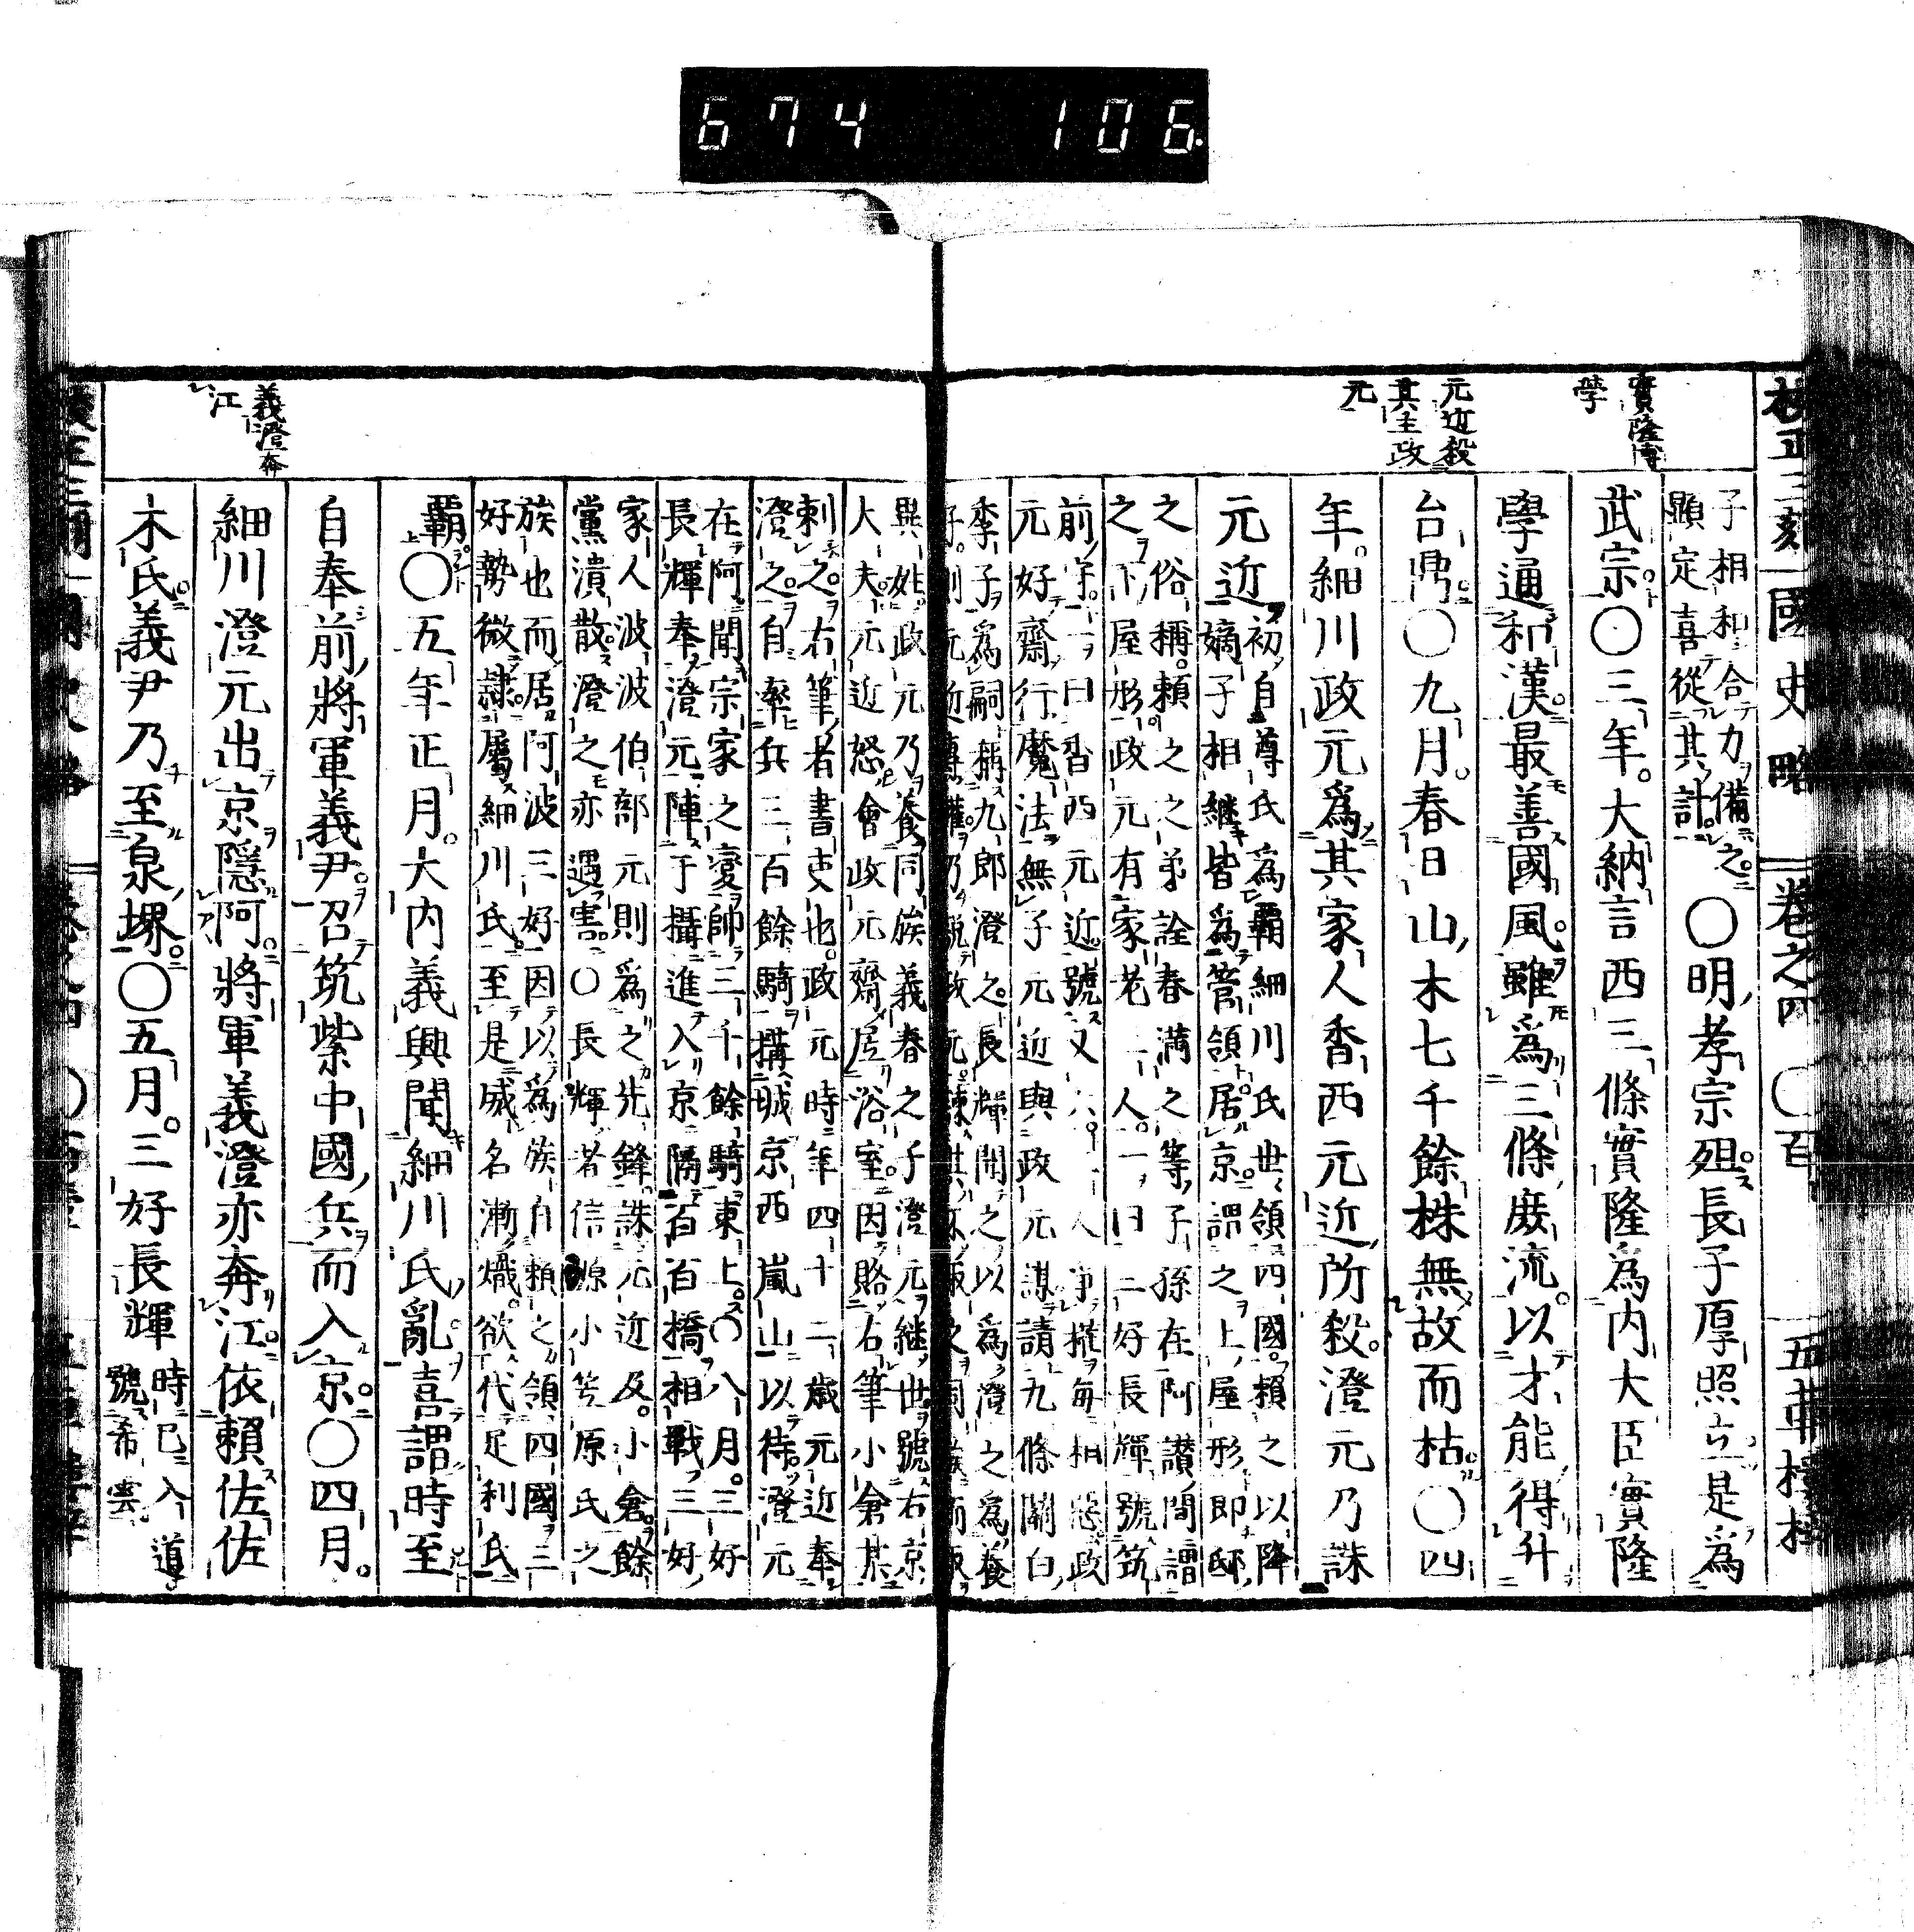 674 106
校正三刻國史略 卷之四 〇百 五車樓梓
實隆博
學
元近殺
其主政
元
子相和合力備之
顯定喜從其計〇明孝宗殂長子厚照立是爲
武宗〇三年大納言西三條實隆爲内大臣實隆
學通和漢最善國風雖爲三條庶流以才能得升
台鼎〇九月春日山木七千餘株無故而枯〇四
年細川政元爲其家人香西元近所殺澄元乃誅
元近初自尊氏爲霸細川氏世領四國賴之以降
嫡子相繼皆爲管領居京謂之上屋形即邸
之俗稱賴之之弟詮春滿之等子孫在阿讃間謂
之下屋形政元有家老二人一曰三好長輝號筑
前守一曰香西元近號又六二人爭權每相惡政
元好齋行魔法無子元近與政元謀請九條關白
季子爲嗣稱九郎澄之長輝聞之以爲澄之爲養
異姓政元乃養同族義春之子澄元繼世號右京
大夫元近怒會政元齋居浴室因賂右筆小倉某
刺之右筆者書吏也政元時年四十二歲元近奉
澄之自率兵三百餘騎構城京西嵐山以待澄元
在阿聞宗家之變帥三千餘騎東上〇八月三好
長輝奉澄元陣于攝進入京隔百百橋相戰三好
家人波波伯部元則爲之先鋒誅元近及小倉餘
黨潰散澄之亦遇害〇長輝者信源小笠原氏之
族也而居阿波三好因以爲族自賴之領四國三
好勢微隷屬細川氏至是威名漸熾欲代足利氏
霸〇五年正月大内義興聞細川氏亂喜謂時至
自奉前將軍義尹召筑紫中國兵而入京〇四月
細川澄元出京隱阿將軍義澄亦奔江依賴佐佐
木氏義尹乃至泉堺〇五月三好長輝時已入道
號希雲
義澄奔
江